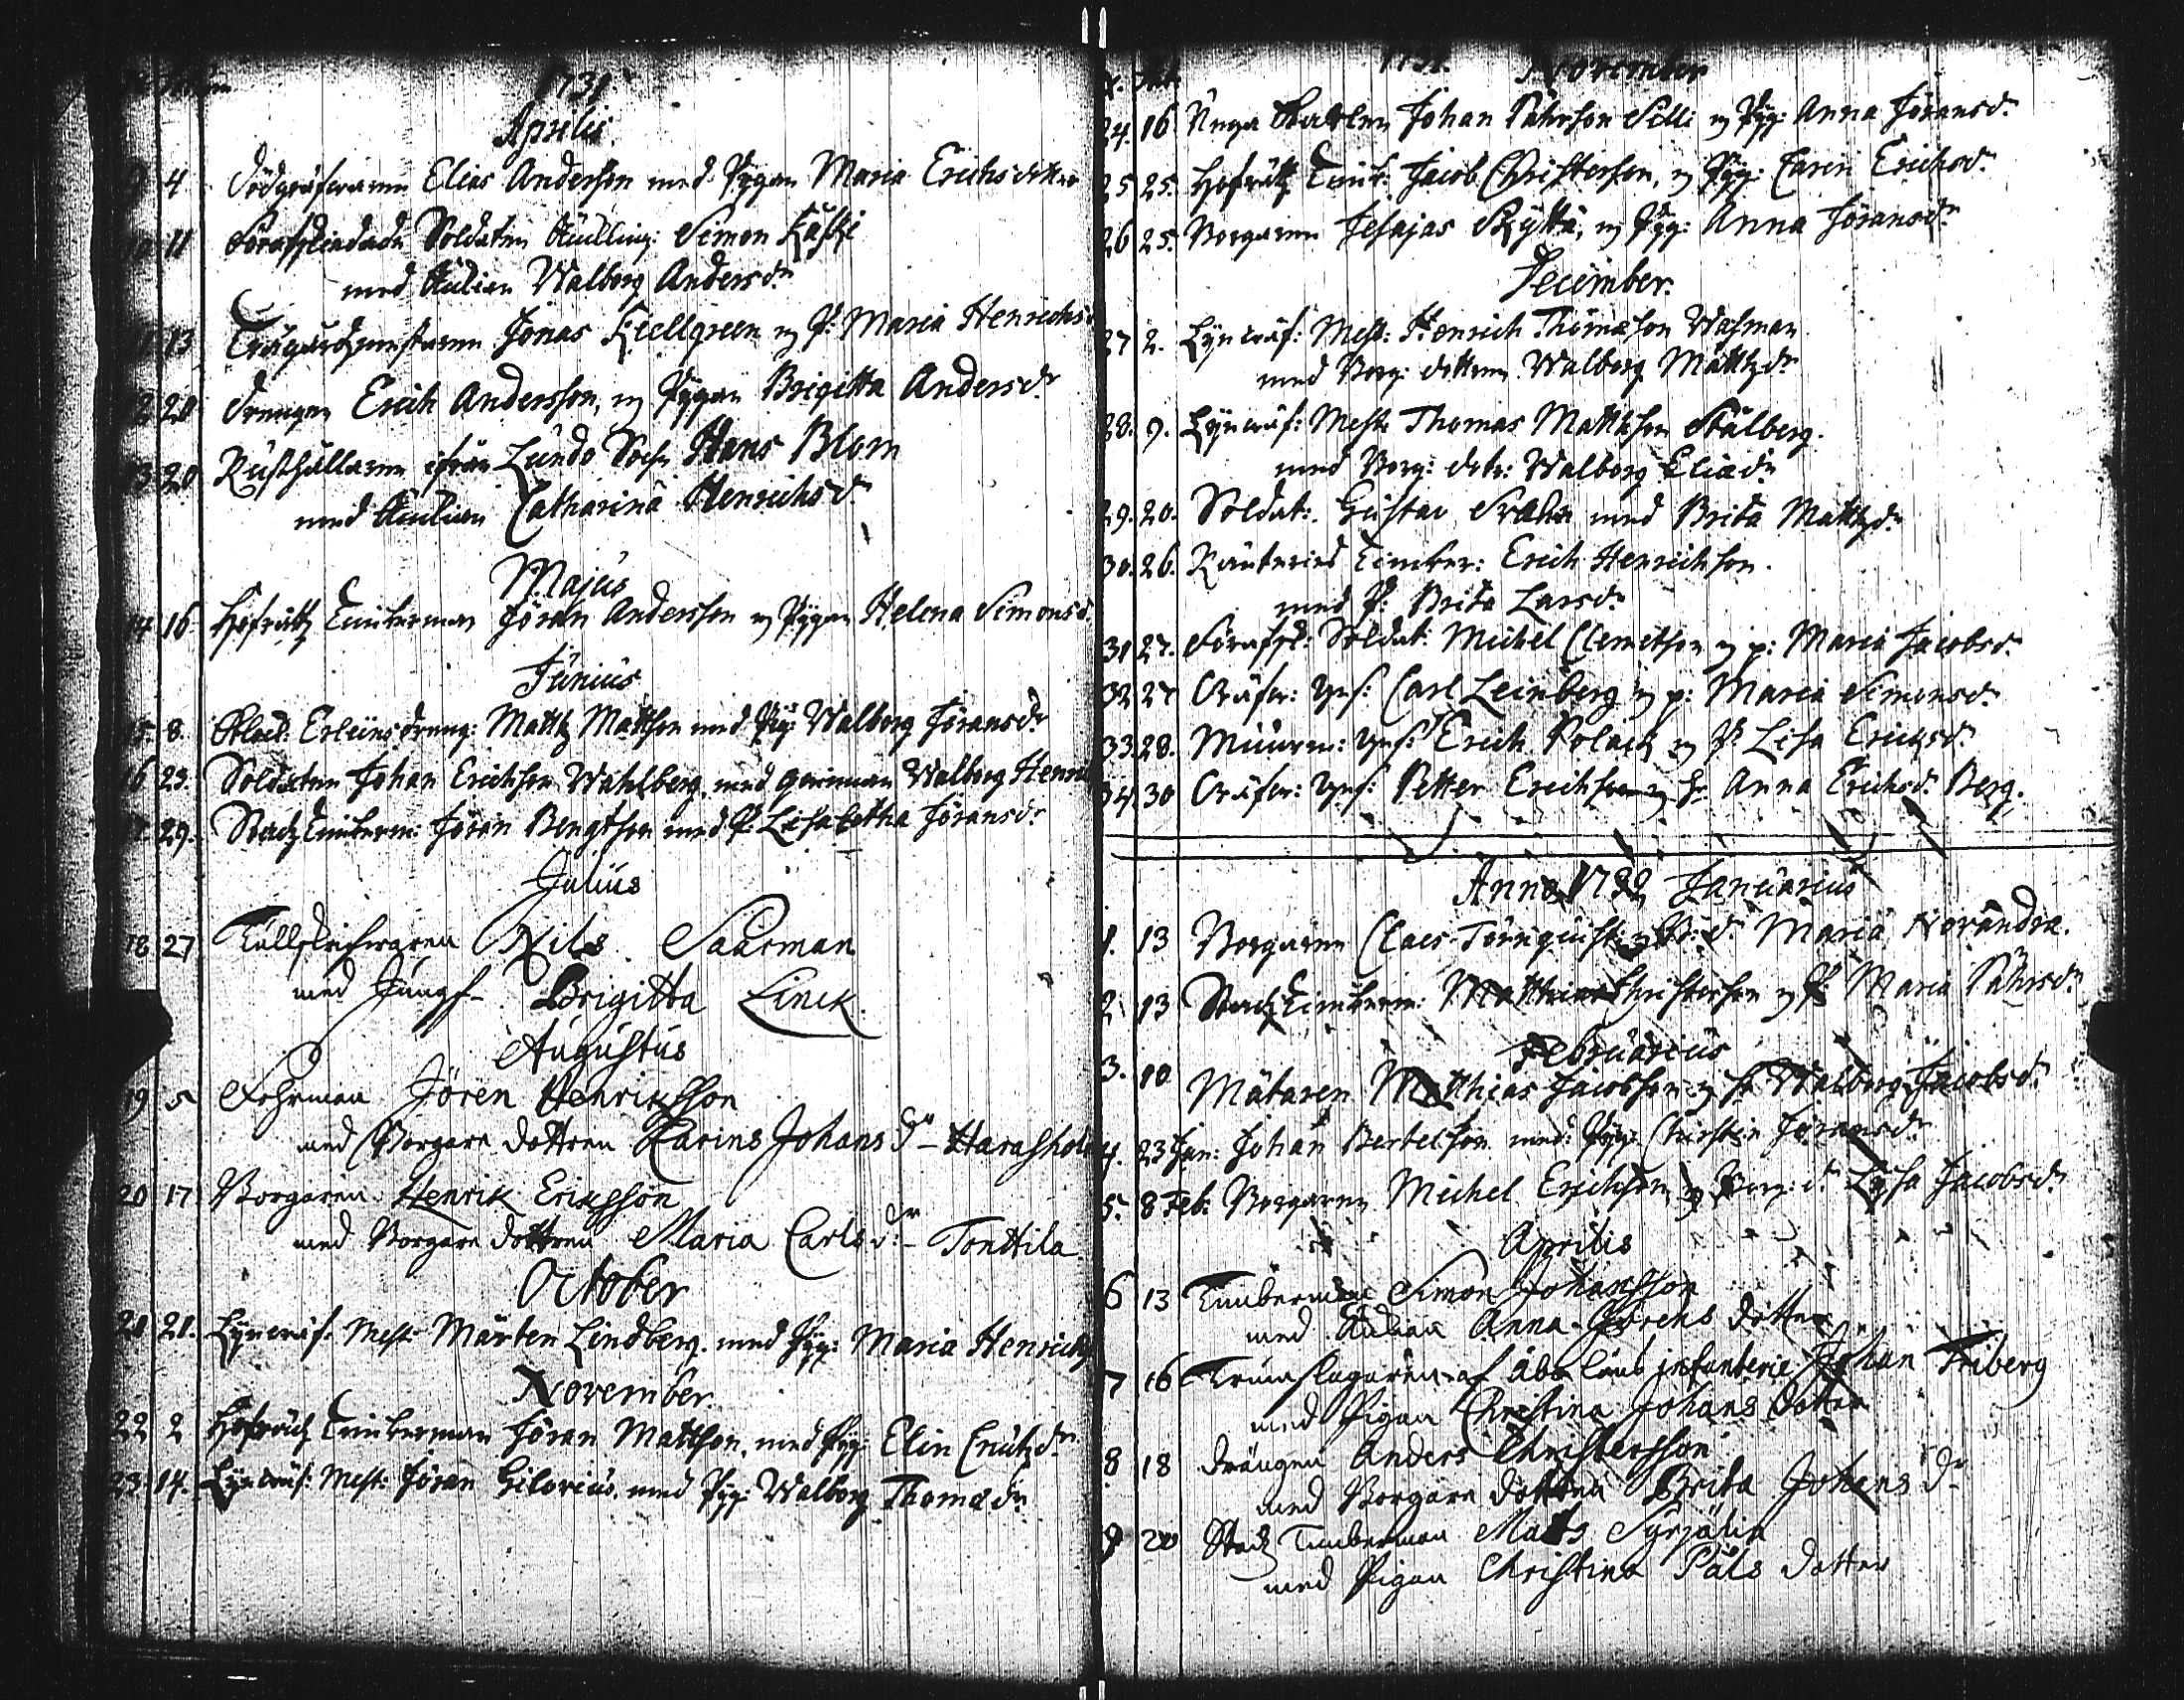 1731
Aprilis.
9 4 Dödgräfwaren Elias Andersson med Pygan Maria Erichsdotter
10 11 Förafskiedade Soldaten Änckling: Simon Kaski
med Änckian Walborg Andersdr
11 13 Trägårdzmestaren Jonas Kiellgreen m P: Maria Henrichsd
12 20 Drengen Erich Andersson, m Pygan Brigitta Andersdr
13 20 Rusthållaren ifrån Lundo Sochn Hans Blom
med Änckian Catharina Henrichsdr
Majus
14 16 Hofrätz Timberman Jöran Andersson m Pygan Helena Simonsd.
Junius
15 8. Erleins dreng: Mattz Mattson med Pig: Walborg Jöransdr
16 23. Soldaten Johan Erichson Wahlberg. med qwinnan Walborg Henri
17 29. Stadz Timberm: Jöran Bengtson med P. Lisabetha Jöransdr
Julius
18 27 Tullskrifwaren Nils Saarman
med Jungf. Brigitta Linck.
Augustus
19 5 Förman Jören Henriksson
med Borgare dottren Karins Johans dr Harashol
20 17 Borgaren Henrik Eriksson
med Borgare dottren Maria Carls dr Tonttila
October
21 21. Lynewäf: Mest: Mårten Lindberg. med Pyg: Maria Henrichs
November.
22 2 Hofrätz Timberman Jöran Mattson, med Pyg: Elin Cnutzdr
23. 14. Lynewäf: Mest: Jöran Gilovius. med Pyg: Walborg Thomædr
1731. November
24. 16 Unga Johan Påhrson Sille m Pyg: Anna Jöransdr
25 25. Hofrätz Timb: Jacob Christerson, m Pyg: Carin Erichsdr
26 25. Borgaren Jesajas Rytta, m Pyg: Anna Jöransdr
December.
27 2. Lynewäf: Mest: Henrich Thomæson Wasman
med Borg: dottren Walborg Mattzdr
28. 9. Lynewäf: Mest: Thomas Mattson Stålberg.
med Borg: dotr: Walborg Eliædr
29. 20. Soldat: Gustav Svahn med Brita Mattzdr
30. 26. Timber: Erich Henrichson.
med P: Brita Larsdr
31 27. Förafsk: Soldat: Michel Clemetson m p: Maria Jacobsdr
32 27 Gräfw: Carl Leinberg m p: Maria Simonsdr
33 28. Muurm: Erich Polack m P: Lisa Erichsdr
34 30 Gräfw: Petter Erichson m Anna Erichsdr Berg.
Anno 1732 Januarius
1. 13 Borgaren Claes Törnquist m B: d: Maria Norandra.
2. 13 Stadz Timberm: Matthias Christerson m P: Maria Påhrsdr
Februarius
3. 10 Mätaren Matthias Jacobson m Walborg Jacobsdr
4. 23 Jan: Johan Bertelson med Pyg: Christin Jöransdr
5. 8 Feb: Borgaren Michel Erichson m Borg: d: Lysa Jacobsdr
Aprilis
6 13 Timberman Simon Johansson
med Änkian Anna Görens dotter
7 16 Trumslagaren af Åbo läns infanterie Johan Friberg
med Pigan Christina Johans dotter
8 18 Drängen Anders Christersson
med Borgare dottren Brita Johans dr
9 20 Stadz Timberman Mats Syrjälin
med Pigan Christina Påls dotter